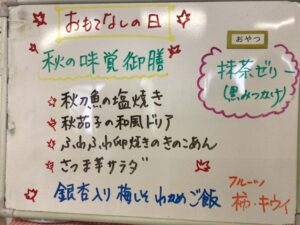 おもてなしの日
秋の味覚御膳
秋刀魚の塩焼き
秋茄子の和風ドリア
ふわふわ卵焼きのきのこあん
さつま芋サラダ
銀杏入り梅しそわかめご飯
おやつ
抹茶ゼリー
(黒みつかけ)
フルーツ
柿・キウイ